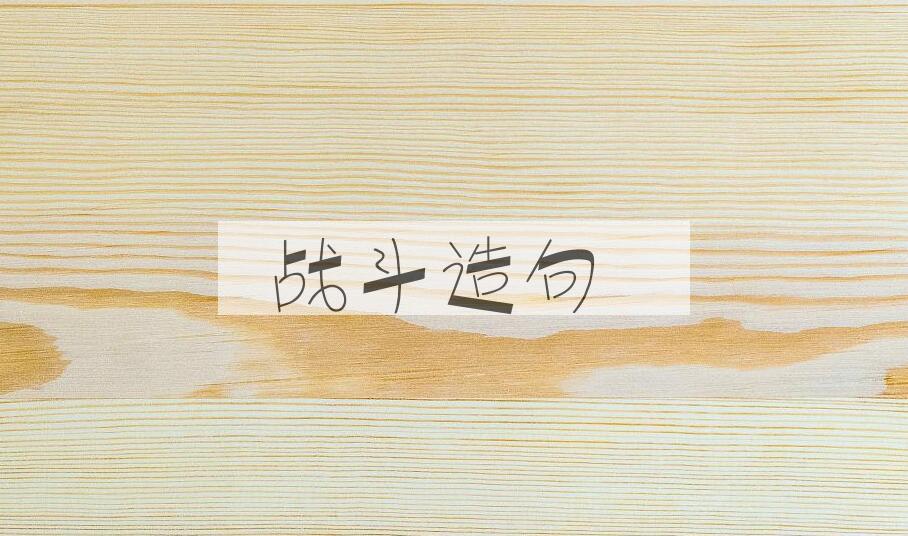 战斗造句